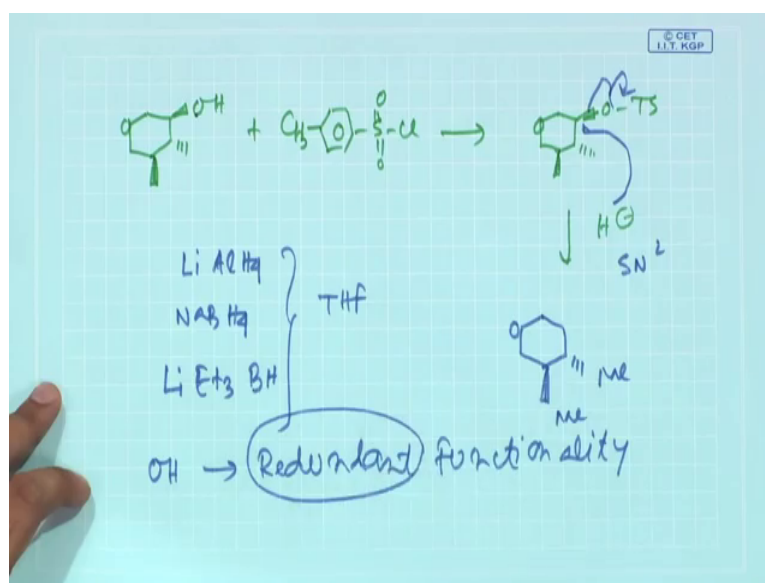 © CET
I.I.T. KGP
O OH + CH3 O S O O Cl → O O-TS
H ⊖
SN2
LiAlH4
NaBH4
THF
LiEt3BH
O
Me
Me
OH → Redundant functionality